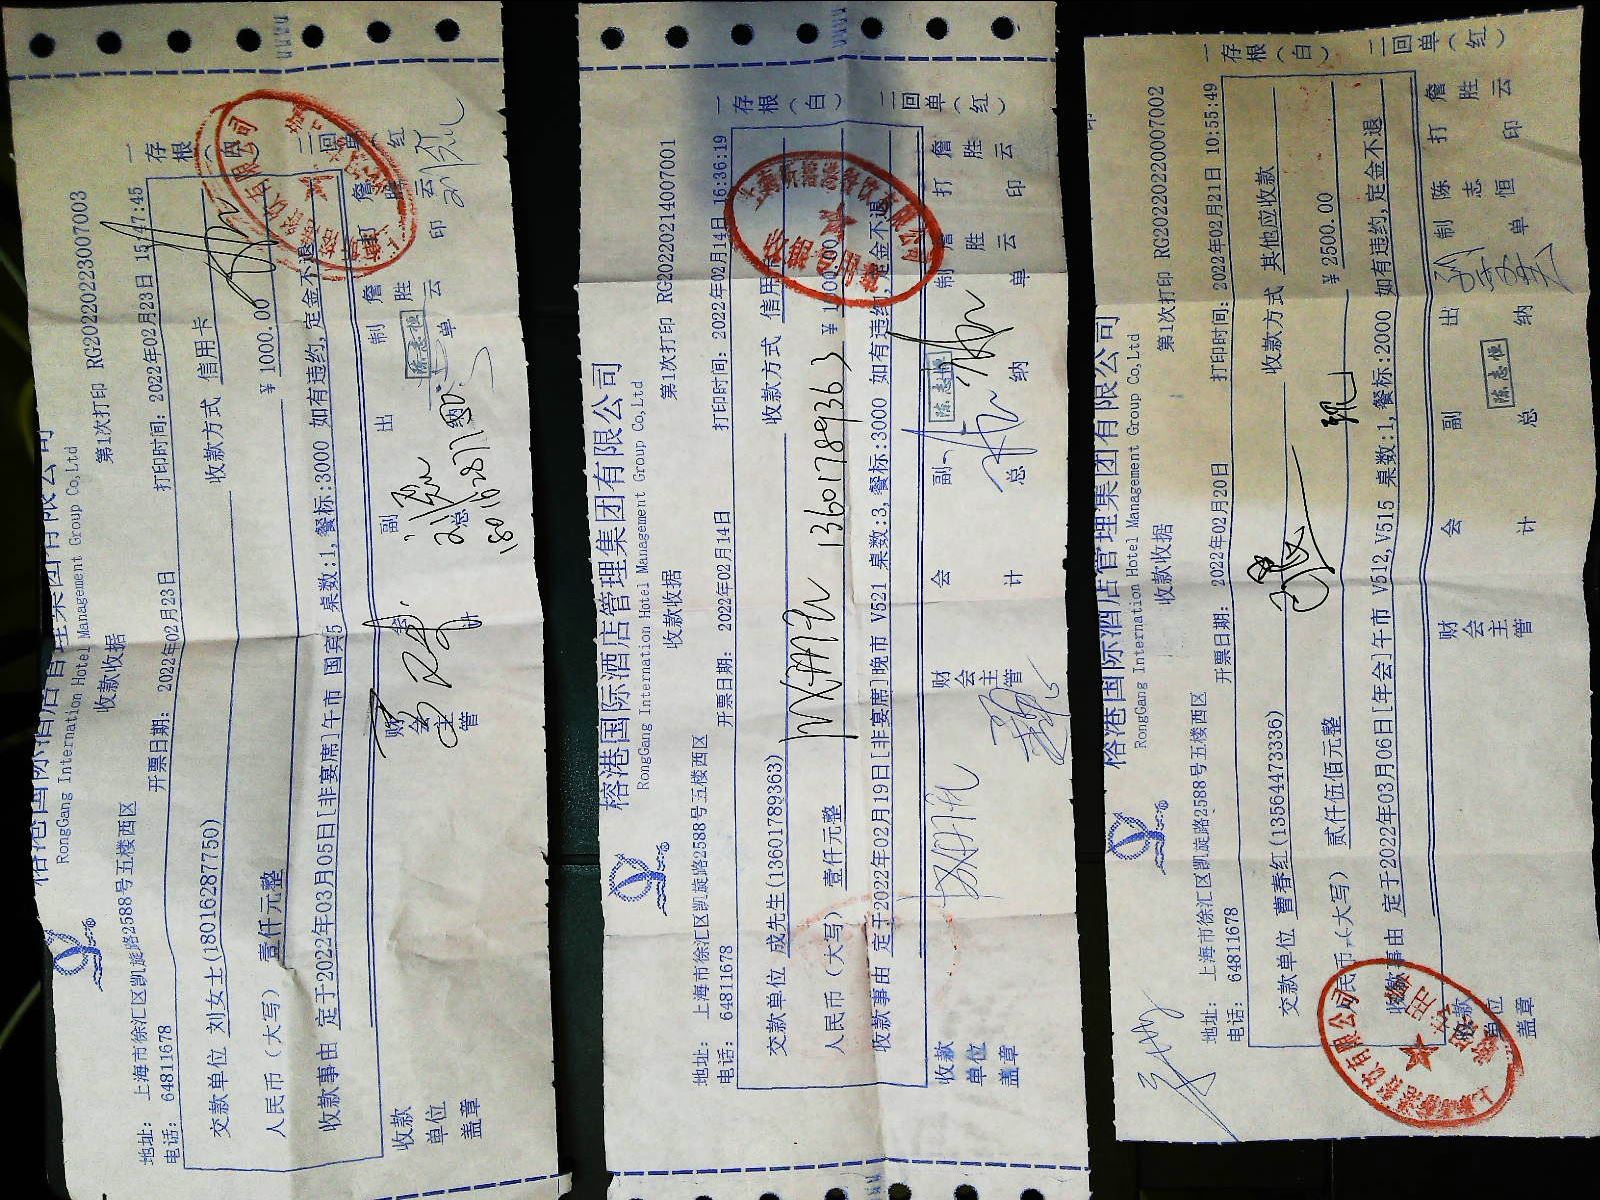 榕港国际酒店管理集团有限公司
RongGang International Hotel Management Group Co,Ltd
收款收据
第1次打印 RG20220223007003
地址: 上海市徐汇区凯旋路2588号五楼西区
电话: 64811678
开票日期: 2022年02月23日
打印时间: 2022年02月23日 15:47:45
交款单位 刘女士(18016287750)
收款方式 信用卡
人民币(大写) 壹仟元整
¥ 1000.00
收款事由 定于2022年03月05日[非宴席]午市 国宾5 桌数:1,餐标:3000 如有违约,定金不退
一存根
二回单(红
收款单位盖章
财会主管
副总
出
制单
詹胜云
打印
詹胜云
陈志恒
榕港国际酒店管理集团有限公司
RongGang International Hotel Management Group Co,Ltd
收款收据
第1次打印 RG20220214007001
地址: 上海市徐汇区凯旋路2588号五楼西区
电话: 64811678
开票日期: 2022年02月14日
打印时间: 2022年02月14日 16:36:19
交款单位 成先生(13601789363)
收款方式 信用
13601789363
人民币(大写) 壹仟元整
收款事由 定于2022年02月19日[非宴席]晚市 V521 桌数:3,餐标:3000 如有违约,定金不退
一存根(白)
二回单(红)
收款单位盖章
财会主管
会计
副总
纳
制单
詹胜云
打印
詹胜云
陈志恒
榕港国际酒店管理集团有限公司
RongGang International Hotel Management Group Co,Ltd
收款收据
第1次打印 RG20220220007002
地址: 上海市徐汇区凯旋路2588号五楼西区
电话: 64811678
开票日期: 2022年02月20日
打印时间: 2022年02月21日 10:55:49
交款单位 曹春红(13564473336)
收款方式 其他应收款
人民币(大写) 贰仟伍佰元整
¥ 2500.00
收款事由 定于2022年03月06日[年会]午市 V512,V515 桌数:1,餐标:2000 如有违约,定金不退
一存根(白)
二回单(红)
收款单位盖章
财会主管
会计
副总
出纳
制单
陈志恒
打印
詹胜云
陈志恒